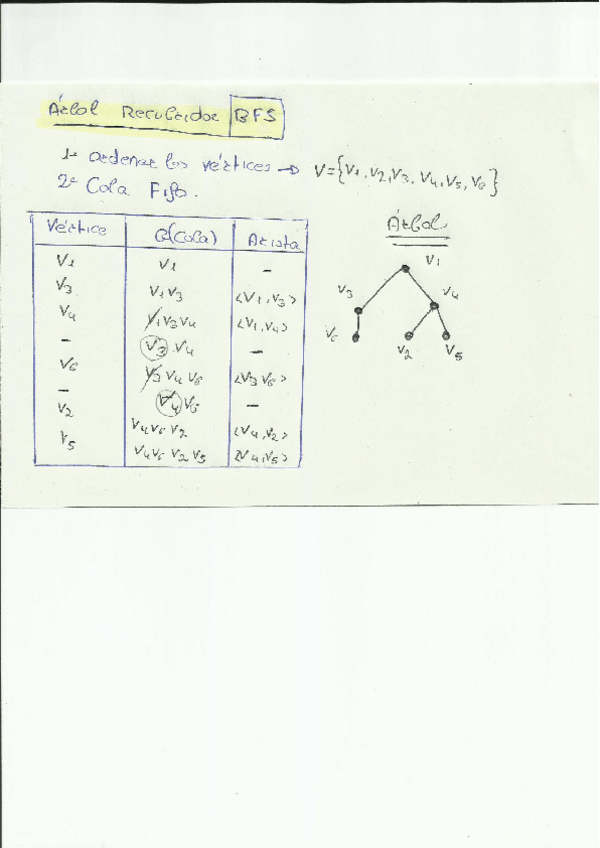 Árbol Recubridor BFS
1º ordenar los vértices → V={V1, V2, V3, V4, V5, V6}
2º Cola Fifo.
Vértice Q(Cola) Arista
V1 V1 –
V3 V1 V3 <V1, V3>
V4 V1 V3 V4 <V1, V4>
– V3 V4 –
V6 V3 V4 V6 <V3 V6>
– V4 V6 –
V2 V4 V6 V2 <V4, V2>
V5 V4 V6 V2 V5 <V4, V5>
Árbol.
V1
V3 V4
V6 V2 V5